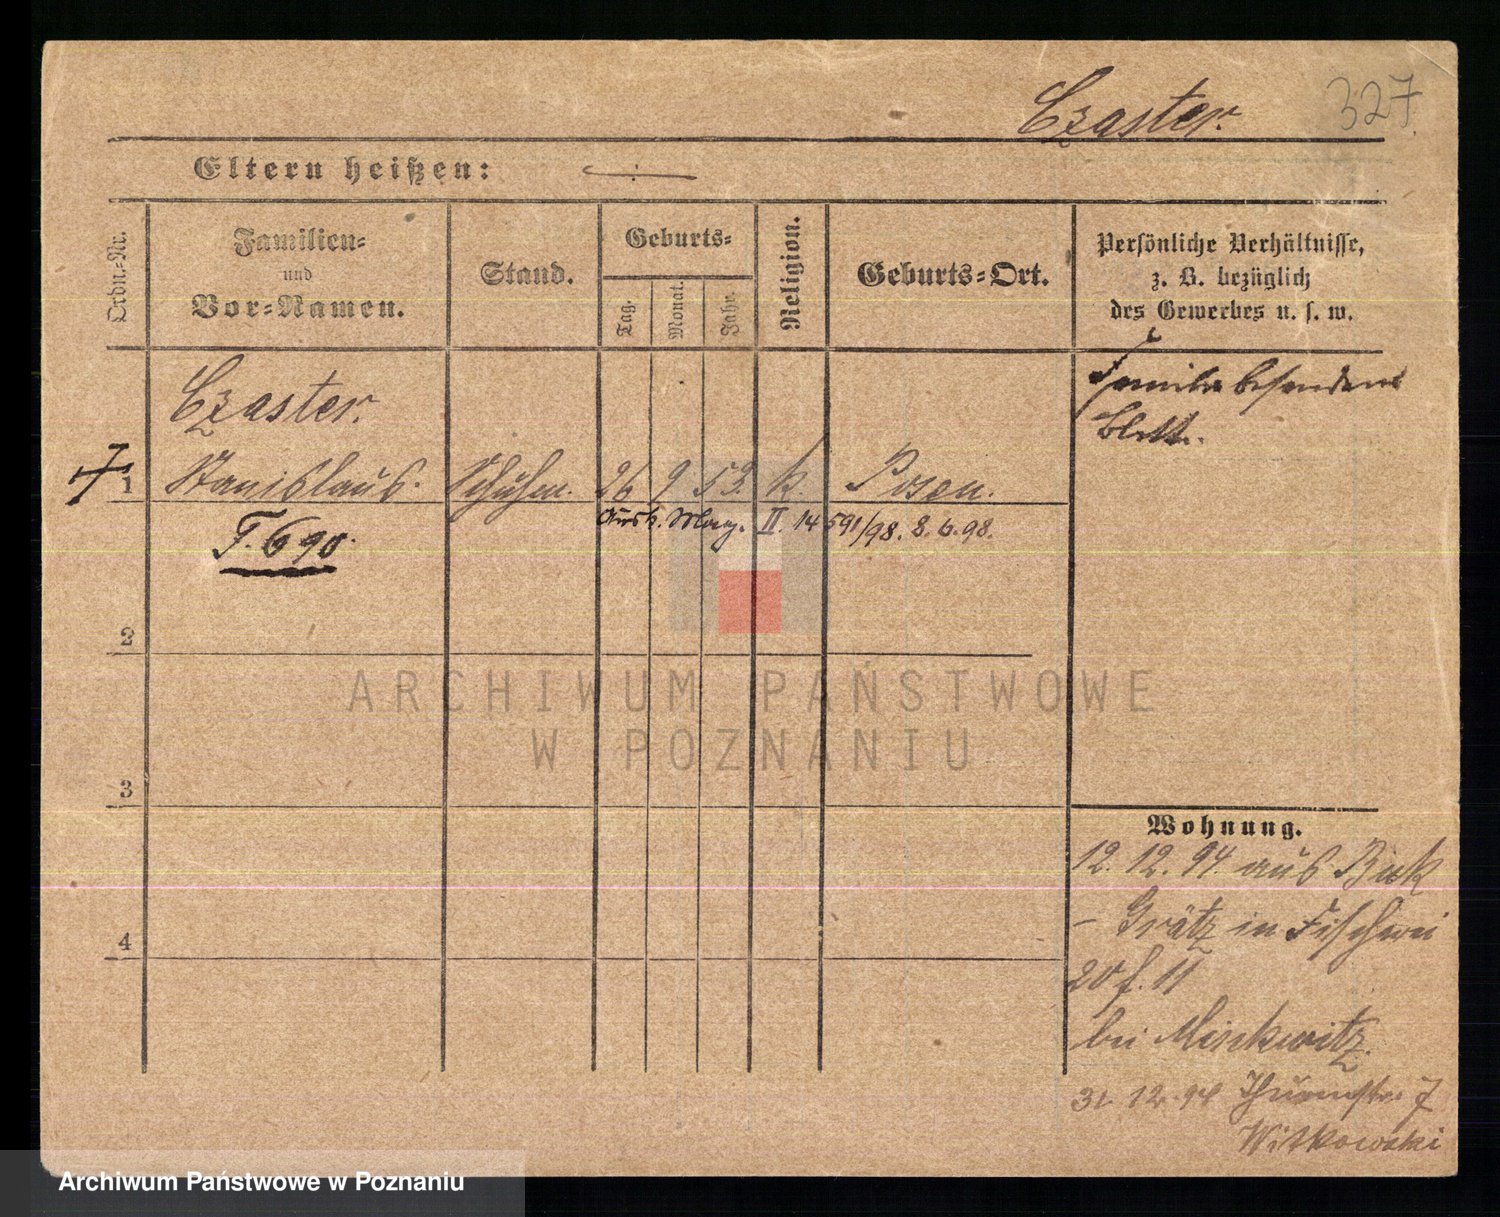 327
Czaster.
Eltern heißen:
Ordn.-Nr.
Familien-
und
Vor-Namen.
Stand.
Geburts-
Tag.
Monat.
Jahr.
Religion.
Geburts-Ort.
Persönliche Verhältnisse,
z. B. bezüglich
des Gewerbes u. s. w.
Czaster.
Familie besonderes
Blatt.
1 Stanislaus. 26 9 53. k. Posen.
Ausk. Mag. II. 14591/98. 8. 6. 98.
T. 690.
2
ARCHIWUM PAŃSTWOWE
W POZNANIU
3
Wohnung.
12. 12. 94. aus Buk
- Grätz in Fischerei
20
4
bei
31 12. 94 7
Witkowski
Archiwum Państwowe w Poznaniu